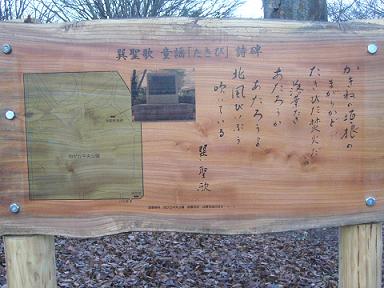 巽聖歌 童謡「たきび」詩碑
かきねの垣根の
まがりかど
たきびだ焚火だ
落葉たき
あたろうか
あたろうよ
北風ぴいぷう
吹いている
巽 聖歌